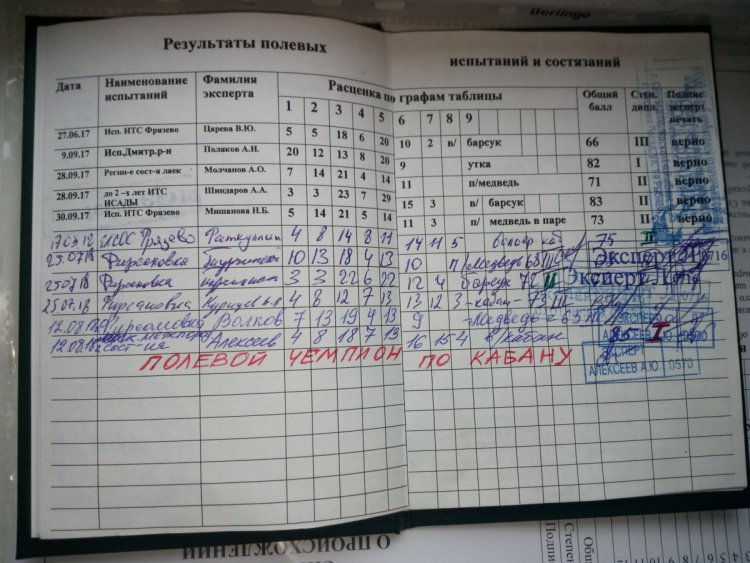 Berlingo
Результаты полевых испытаний и состязаний
Дата Наименование испытаний Фамилия эксперта Расценка по графам таблицы Общий балл Степ. дипл. Подпис эксперт печать
1 2 3 4 5 6 7 8 9
27.06.17 Исп. ИТС Фрязево Царева В.Ю. 5 5 18 6 20 10 2 в/ барсук 66 III верно
9.09.17 Исп.Дмитр.р-н Поляков А.И. 20 12 13 8 20 9 утка 82 I верно
28.09.17 Регион-е сост-я лаек Молчанов А.О. 7 14 21 4 14 11 п/медведь 71 II верно
28.09.17 до 2-х лет ИТС ИСАДЫ Шиндаров А.А. 3 3 23 7 29 15 3 в/ барсук 83 II верно
30.09.17 Исп. ИТС Фрязево Мишанова Н.Б. 5 14 21 5 14 11 3 п/ медведь в паре 73 II верно
Фрязево 4 8 14 8 11 14 11 5 75 II
Фирсановка 10 13 18 4 13 10 п/медведь 68 III Эксперт 0716
Фирсановка 3 3 22 6 22 12 4 барсук 72 II Эксперт
25.07.18 Фирсановка 4 8 12 7 13 13 12 3 кабан 73 III
12.08.18 Фирсановка Волков 7 13 19 4 13 9 Медведь 65 III
12.08.18 сост-ия Алексеев 4 8 18 7 13 16 15 4 в/кабан 85 I
ЭКСПЕРТ АЛЕКСЕЕВ А.Ю. 0570
ПОЛЕВОЙ ЧЕМПИОН ПО КАБАНУ
О ПРОИСХОЖДЕНИИ